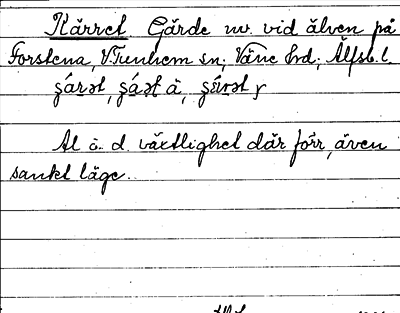 Kärret Gärde nv. vid älven på
Forstena, V. Tunhem sn; Väne hd; Älfsb. l.
Al o. d. växtlighet där förr, även
sankt läge.